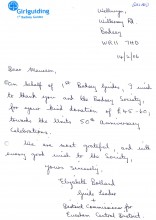 Girlguiding
1st Badsey Guides
Willersey Rd,
Badsey
WR11 7HD
14/2/06
Dear Maureen,
On behalf of 1st Badsey Guides, I wish
to thank you and the Badsey Society,
for your kind donation of £45-60,
towards the Units 50th anniversary
Celebrations.
We are most grateful, and with
every good wish to the Society,
Yours sincerely,
Elizabeth
Guide Leader
+
District Commissioner for
Evesham Central District